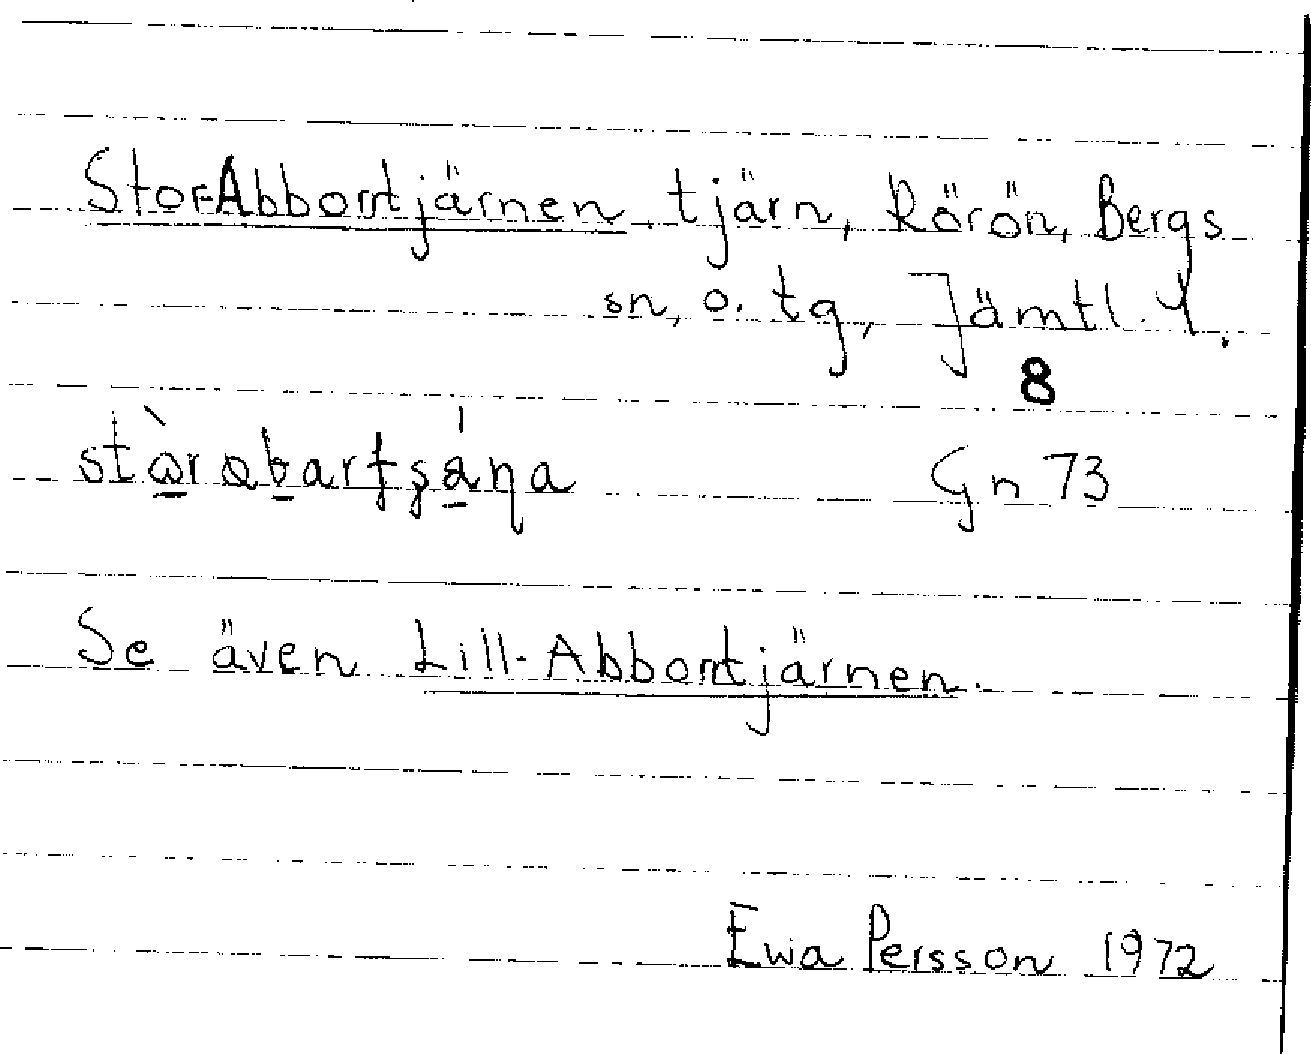 Stor-Abborrtjärnen, tjärn, Rörön, Bergs
sn, o. tg, Jämtl. l.
8
Gn 73
Se även Lill-Abborrtjärnen.
Ewa Persson 1972